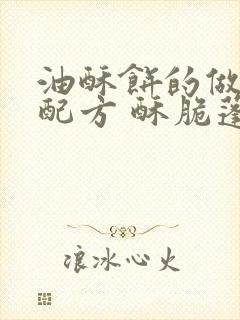 油酥餅的做
配方 酥脆蓬
浪冰心火